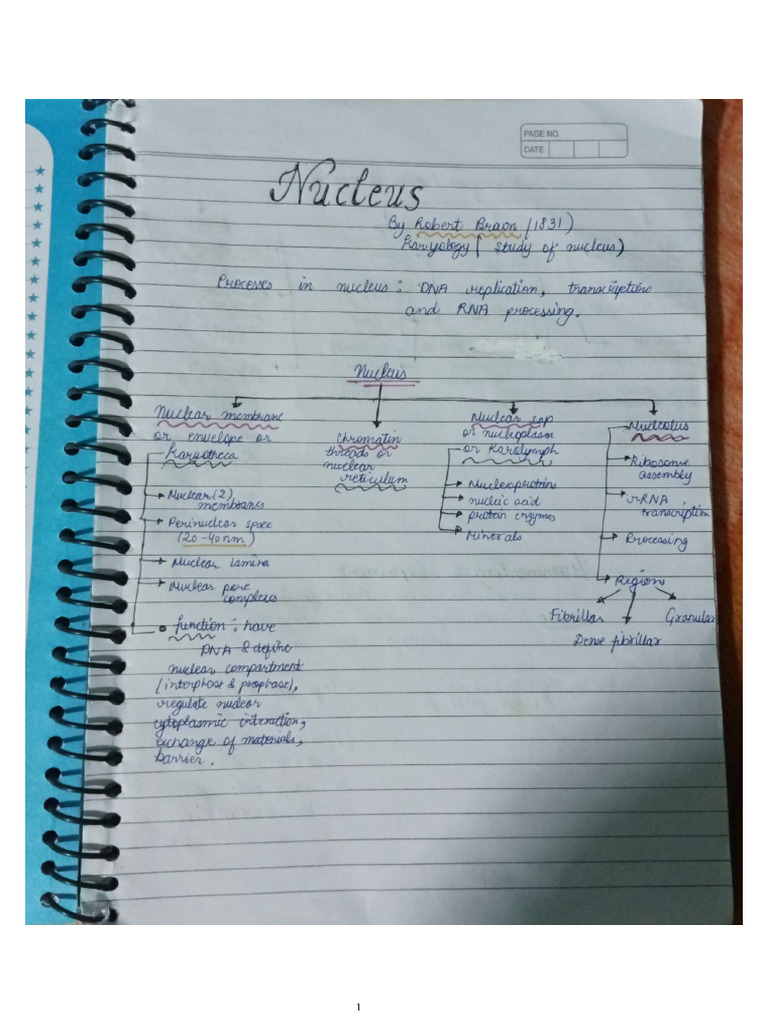 PAGE NO.
DATE
Nucleus
By Robert Braon (1831)
Karyology ( study of nucleus)
Processes in nucleus: DNA replication, transcription
and RNA processing.
Nucleus
Nuclear membrane
or envelope or
Karyotheca
→ Nuclear (2)
membranes
→ Perinuclear space
(20-40nm)
→ Nuclear lamina
→ Nuclear pore
complexes
• function: have
DNA & define
nuclear compartment
(interphase & prophase),
regulate nuclear
cytoplasmic interaction,
exchange of materials,
barrier.
Chromatin
threads or
nuclear
reticulum
Nuclear sap
or nucleoplasm
or Karolymph
→ Nucleoproteins
→ nucleic acid
→ protein enzymes
→ Minerals
Nucleolus
→ Ribosome
assembly
→ rRNA
transcription
→ Processing
→ Regions
Fibrillar
Dense fibrillar
Granular
1